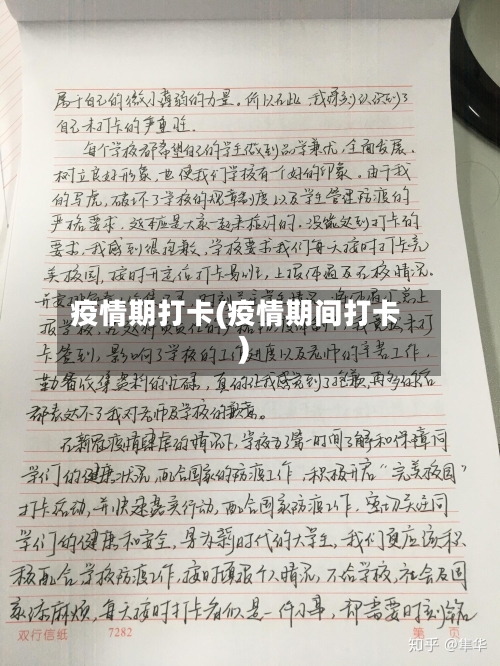 属于自己的微小薄弱的力量。所以在此，我深刻认识到了
自己未打卡的严重性。
每个学校都希望自己的学生做到品学兼优，全面发展，
树立良好形象，也使我们学校有一个好的印象。由于我
的写虎，破坏了学校的规章制度以及学生管理防疫的
严格要求，这本应是大家一起来推讨的。没能达到打卡的
要求，我感到很抱歉，学校要求我们每天按时打卡完
美校园，按时开定位打卡易班，上报体温及在校情况。
疫情期打卡(疫情期间打卡
)
卡签到，影响了学校的工作进度以及老师的辛苦工作，
勤奋收集资料的忙碌，真的让我感觉到了抱歉，再多的
都表达不了我对老师及学校的歉意。
在新冠疫情肆虐的情况下，学校为了第一时间了解和保障同
学们的健康状况，配合国家的防疫工作，积极开启“完美校园”
打卡活动，并快速落实行动，配合国家防疫工作，密切关注同
学们的健康和安全，身为新时代的大学生，我们更应该积
极配合学校防疫工作，按时填报个人情况，不给学校，社会及国
家添麻烦，每天按时打卡看似是一件小事，却需要时刻铭
双行信纸 7282 第 页
知乎 @隼华